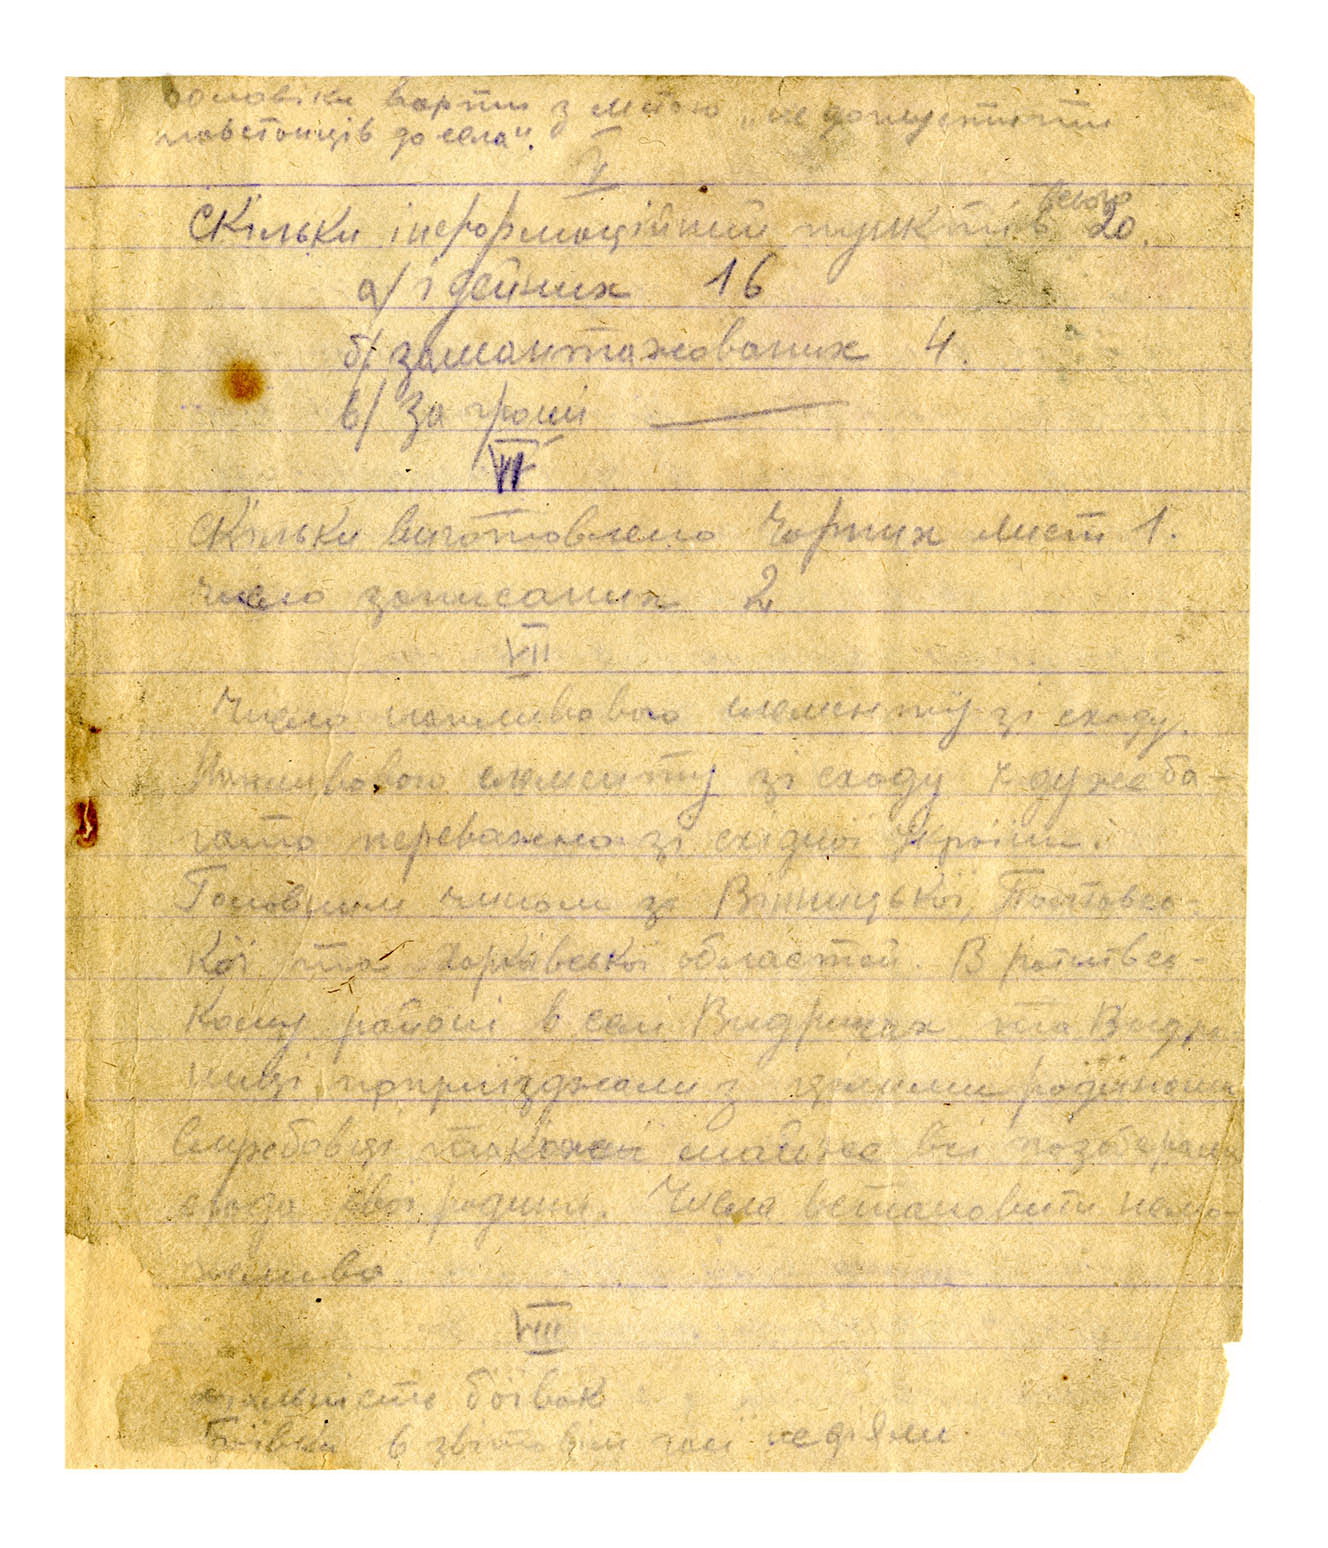 чоловіки варти з метою „не допустити
повстанців до села".
V
всього
Скільки інформаційний пунктів 20.
а/ ідейних 16
б/ замантажованих 4.
в/ За гроші —
VI
Скільки виготовлено Чорних лист 1.
Число записаних 2
VII
Число напливового елементу зі сходу.
Напливового елементу зі сходу є дуже ба-
гато переважно зі східної України.
Головним чином зі Вінницької, Полтавсь-
кої та Харківської областей В
кому районі в селі Видричах та
поприїзджали з цілими родинами
також майже всі позабирали
сюда свої родини. Числа встановити немо-
жливо
VIII
діяльність боївок
Боївки в звітовім часі не діяли